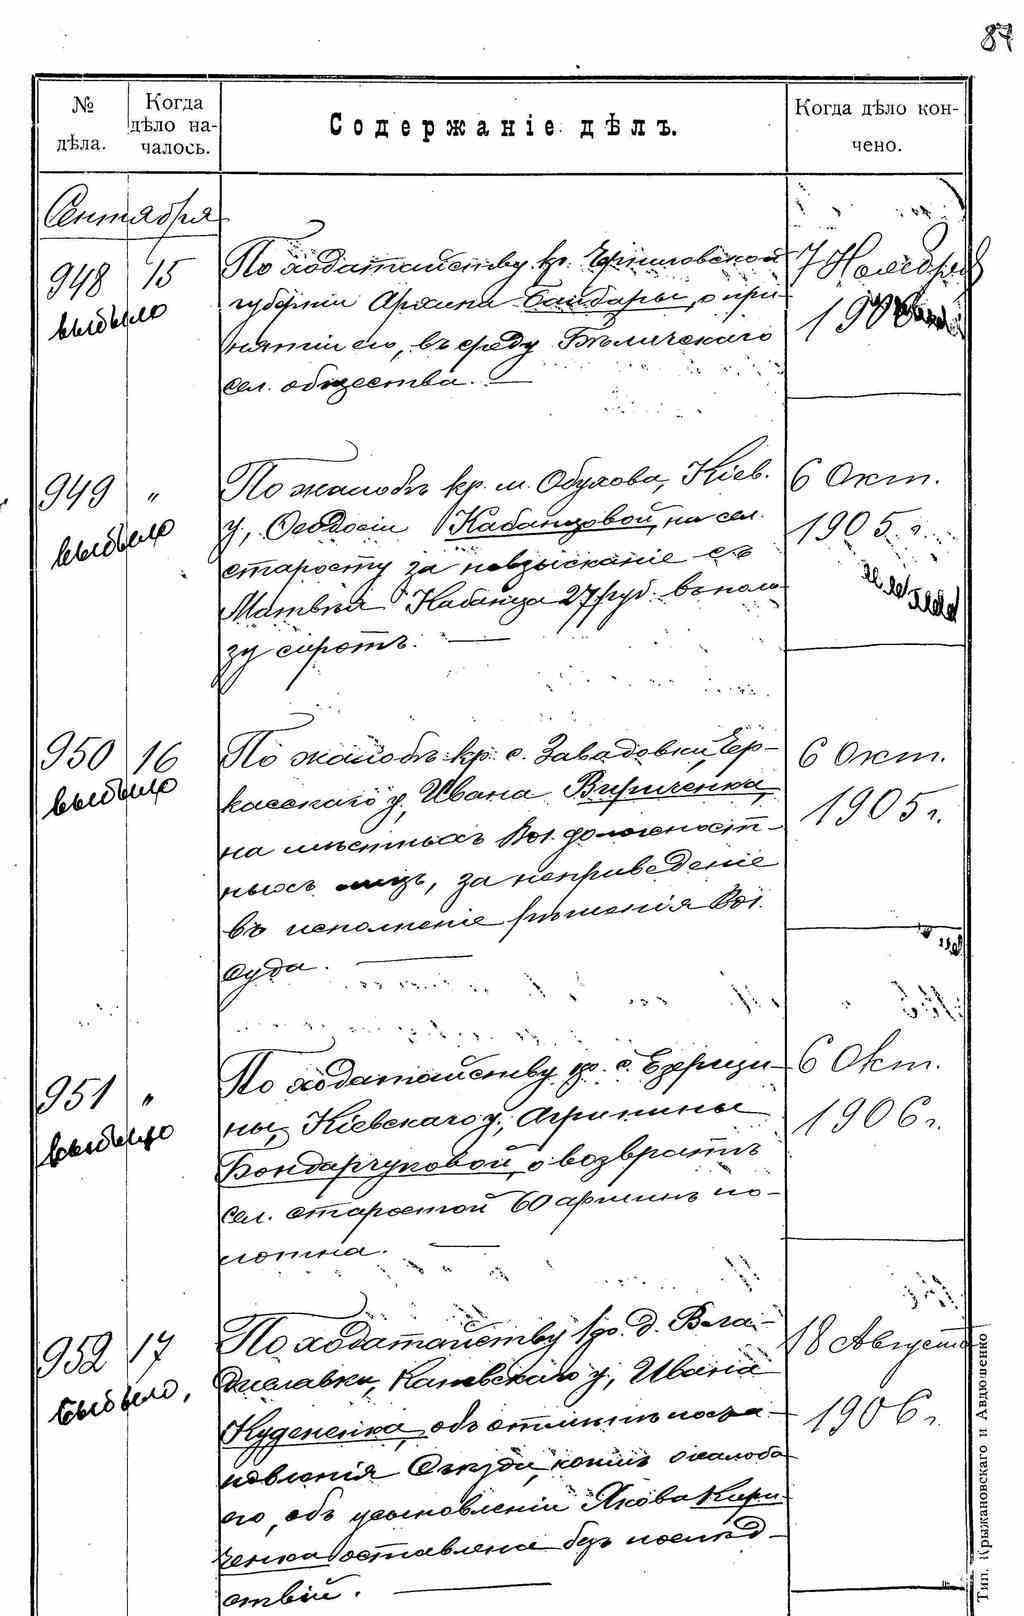 87
№ дѣла.
Когда дѣло на-
чалось.
Содержаніе дѣлъ.
Когда дѣло кон-
чено.
Сентября
948 15
выбыло
По ходатайству кр. Черниговской
губерніи Архипа Байбары, о при-
нятіи его, въ среду Бѣличскаго
сел. общества. —
7 Ноября
190
949 "
выбыло
По жалобѣ кр. м. Обухова, Кіев.
у., Ѳеодосіи Кабанцовой, на сел.
старосту за невзысканіе съ
Матвѣя Кабанца 27 руб. въ поль-
зу сиротъ. —
6 Окт.
1905 г.
950 16
выбыло
По жалобѣ кр. с. Завадовки, Чер-
касскаго у., Ивана Вириченка,
на мѣстныхъ Вол. должност-
ныхъ лицъ, за неприведеніе
въ исполненіе рѣшенія Вол.
суда. —
6 Окт.
1905 г.
951 "
выбыло
По ходатайству кр. с.
ны, Кіевскаго у., Агрипины
Бондарчуковой, о возвратѣ
сел. старостой 60 аршинъ по-
лотна. —
6 Окт.
1906 г.
952 17
выбыло,
По ходатайству кр. д. Вла-
диславки, Каневскаго у., Ивана
объ отмѣнѣ поста-
новленія жалоба
его, объ усыновленіи Якова Кири-
ченка оставлена безъ послѣд-
ствій. —
18 Августа
1906 г.
Тип. Крыжановскаго и Авдюшенко